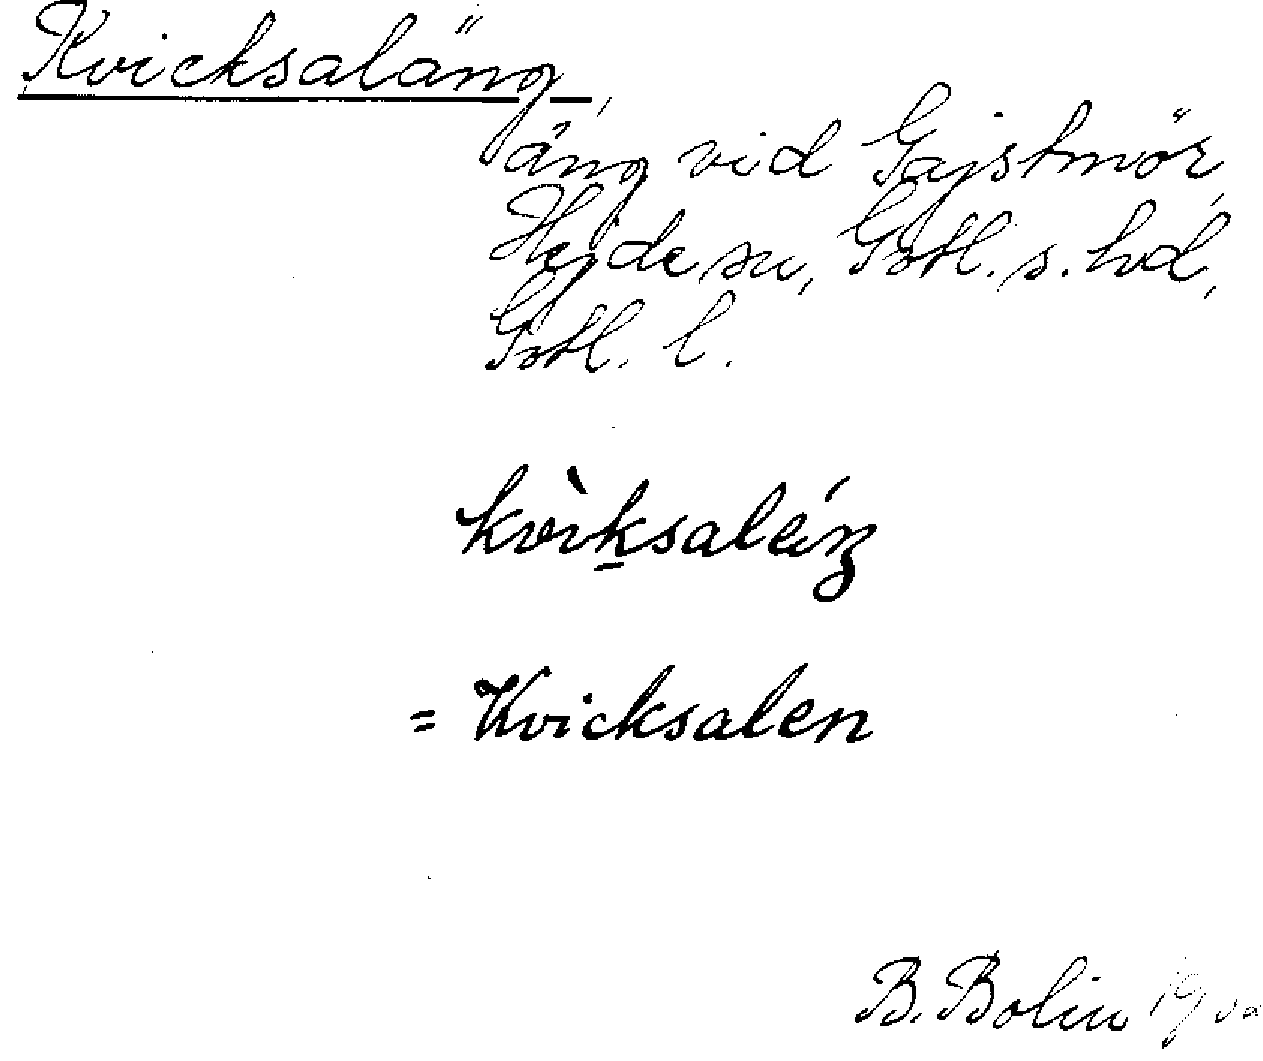 Kvicksaläng,
äng vid Gajstmör,
Hejde sn, Gotl. s. hd,
Gotl. l.
kvìksaleiŋ
= Kvicksalen
B. Bolin